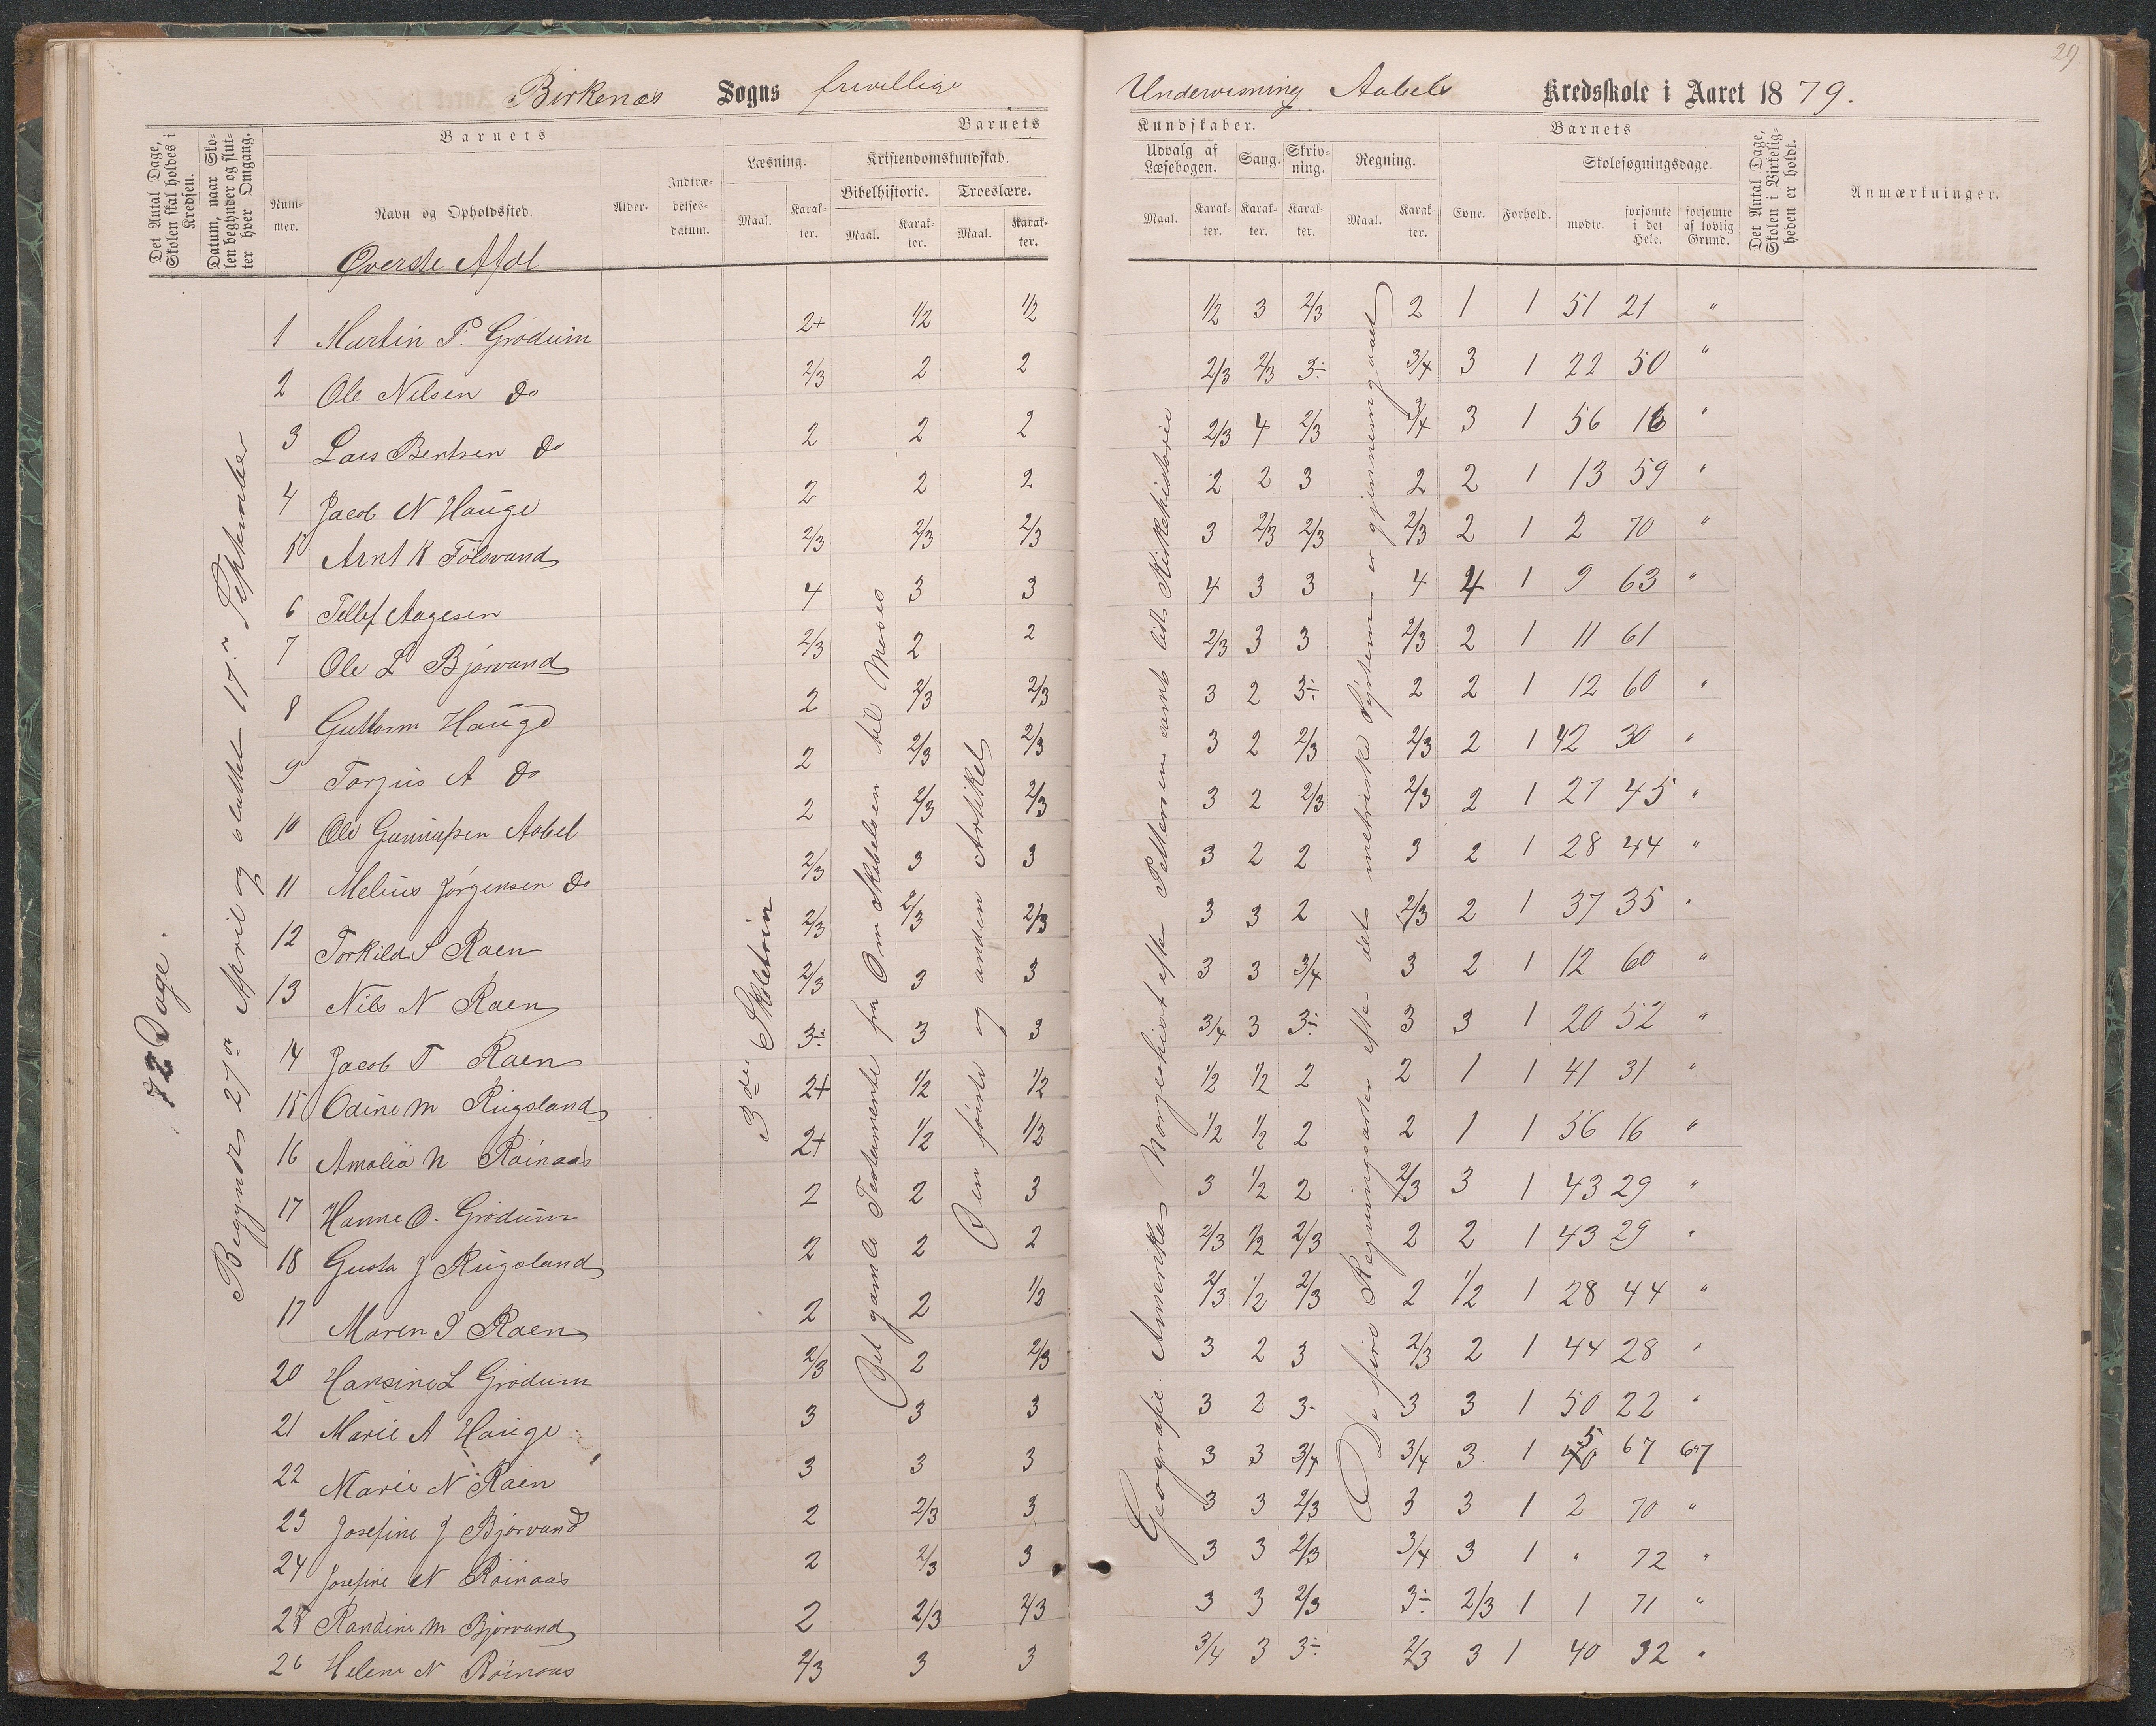 29
Birkenæs Sogns frivillige Undervisning Aabels Kredsskole i Aaret 1879.
Det Antal Dage, Skolen skal holdes i Kredsen.
Datum, naar Skolen begynder og slutter hver Omgang.
Barnets
Nummer.
Navn og Opholdssted.
Alder.
Indtrædelsesdatum.
Barnets
Læsning.
Maal.
Karakter.
Kristendomskundskab.
Bibelhistorie.
Maal.
Karakter.
Troeslære.
Maal.
Karakter.
Kundskaber.
Udvalg af Læsebogen.
Maal.
Karakter.
Sang.
Karakter.
Skrivning.
Karakter.
Regning.
Maal.
Karakter.
Barnets
Evne.
Forhold.
Skolesøgningsdage.
mødte.
forsømte i det Hele.
forsømte af lovlig Grund.
Det Antal Dage, Skolen i Virkeligheden er holdt.
Anmærkninger.
Øverste Afdl
72 Dage.
Begyndt 27de April og sluttet 17de September
3die Skoletrin
Det gamle Testamente fra Om Skabelsen til Moses
Den første og anden Artikel
Geografie. Amerika Norgeskart efter Pettersen samt lidt Kirkehistorie
De fire Regningsarter efter det metriske System er gjennemgaaet
1 Martin P. Grødum 2+ 1/2 1/2 1/2 3 2/3 2 1 1 51 21 "
2 Ole Nilsen do 2/3 2 2 2/3 2/3 3÷ 3/4 3 1 22 50 "
3 Lars Bentsen do 2 2 2 2/3 4 2/3 3/4 3 1 56 16 "
4 Jacob N Hauge 2 2 2 2 2 3 2 2 1 13 59 "
5 Arnt K Tolsvand 2/3 2/3 2/3 3 2/3 2/3 2/3 2 1 2 70 "
6 Tellef Aagesen 4 3 3 4 3 3 4 4 1 9 63 "
7 Ole L Bjørvand 2/3 2 2 2/3 3 3 2/3 2 1 11 61
8 Guttorm Hauge 2 2/3 2/3 3 2 3÷ 2 2 1 12 60 "
9 Torjus A do 2 2/3 2/3 3 2 2/3 2/3 2 1 42 30 "
10 Ole Gunnufsen Aabel 2 2/3 2/3 3 2 2/3 2/3 2 1 27 45 "
11 Melius Jørgensen do 2/3 3 3 3 2 2 3 2 1 28 44 "
12 Torkild S Raen 2/3 2/3 2/3 3 3 2 2/3 2 1 37 35 "
13 Nils N Raen 2/3 3 3 3 3 3/4 3 2 1 12 60 "
14 Jacob T Raen 3÷ 3 3 3/4 3 3÷ 3 3 1 20 52 "
15 Odine M Rugsland 2+ 1/2 1/2 1/2 1/2 2 2 1 1 41 31 "
16 Amalia N Röinaas 2+ 1/2 1/2 1/2 1/2 2 2 1 1 56 16 "
17 Hanne O. Grødum 2 2 3 3 1/2 2 2/3 3 1 43 29 "
18 Gusta J Rugsland 2 2 2 2/3 1/2 2/3 2 2 1 43 29 "
17 Maren S Raen 2 2 1/2 2/3 1/2 2/3 2 1/2 1 28 44 "
20 Hansine L Grødum 2/3 2 2/3 3 2 3 2/3 2 1 44 28 "
21 Marie A Hauge 3 3 3 3 2 3- 3 3 1 50 22 "
22 Marie N Raen 3 3 3 3 3 3/4 3/4 3 1 5 67 67
23 Josefine J Bjørvand 2 2/3 3 3 3 2/3 3 3 1 2 70 "
24 Josefine N Röinaas 2 2/3 3 3 3 2/3 3/4 3 1 " 72 "
25 Randine M Bjørvand 2 2/3 2/3 3 3 2/3 3÷ 2/3 1 1 71 "
26 Helene N Röinaas 2/3 3 3 3/4 3 3÷ 2/3 3 1 40 32 "